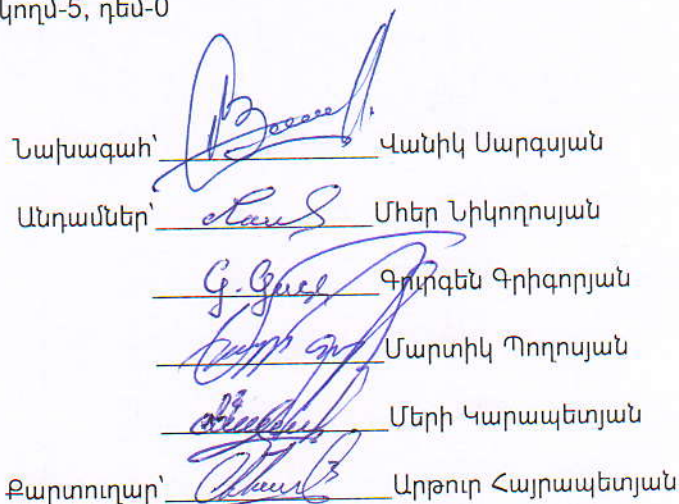 կողմ-5, դեմ-0
Նախագահ՝ Վանիկ Սարգսյան
Անդամներ՝ Մհեր Նիկողոսյան
Գուրգեն Գրիգորյան
Մարտիկ Պողոսյան
Մերի Կարապետյան
Քարտուղար՝ Արթուր Հայրապետյան